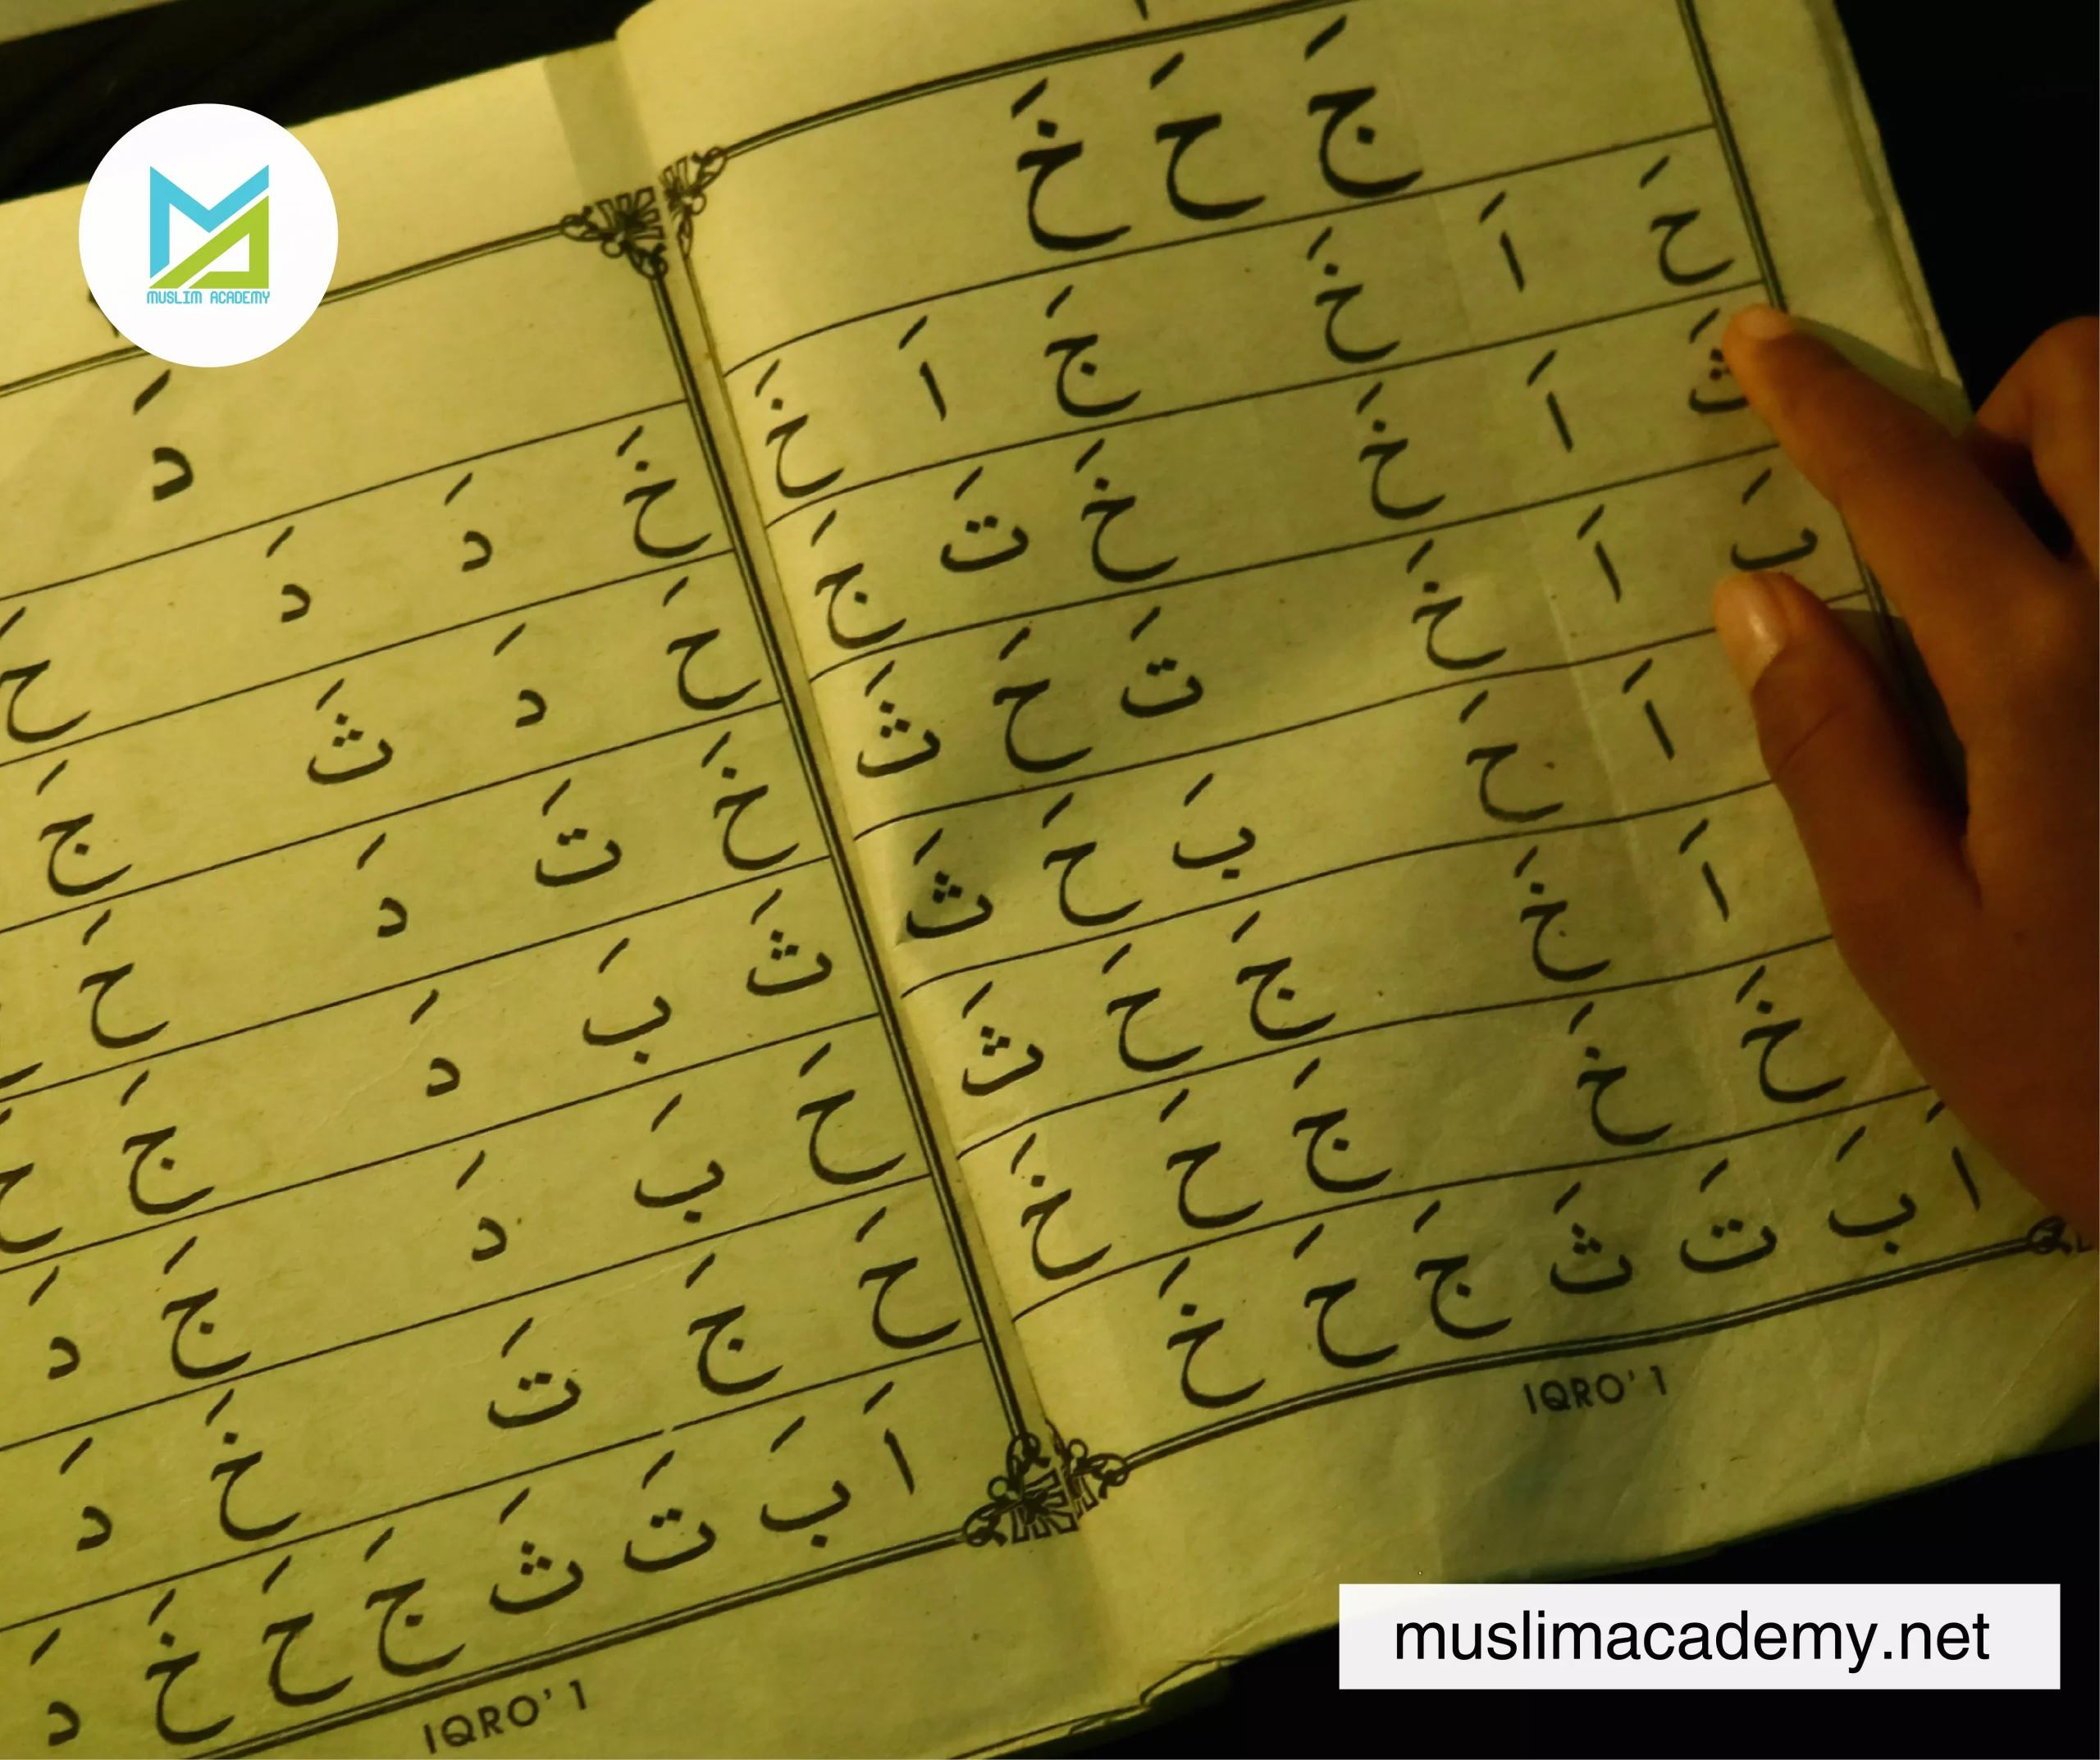 MUSLIM ACADEMY
جَ حَ خَ
حَ اَ خَ جَ اَ خَ
ثَ اَ خَ خَ تَ جَ
اَ خَ تَ حَ ثَ
اَ حَ بَ حَ ثَ
اَ خَ جَ حَ ثَ
خَ خَ جَ حَ خَ
اَ بَ تَ ثَ جَ حَ خَ
IQRO' 1
دَ
خَ دَ دَ حَ
حَ دَ ثَ جَ
خَ تَ دَ حَ
ثَ بَ دَ جَ
حَ بَ دَ جَ دَ
حَ جَ تَ خَ دَ
اَ بَ تَ ثَ جَ حَ خَ دَ
IQRO' 1
muslimacademy.net